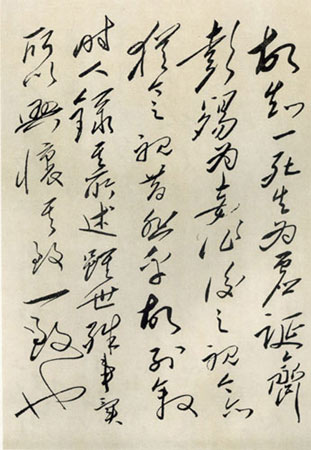 故知一死生為虛誕齊
彭殤為妄作後之視今亦
猶今之視昔悲乎故列敘
時人錄其所述雖世殊事異
所以興懷其致一致也